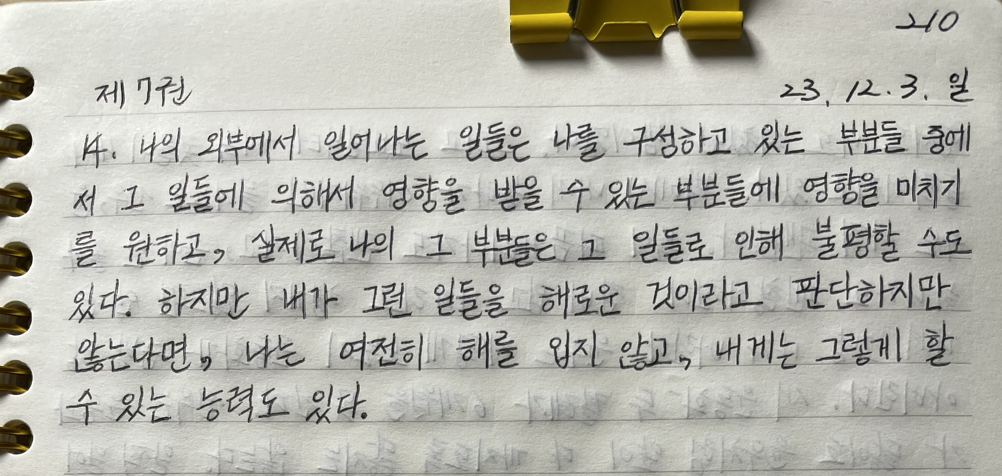 210
제 7권 23. 12. 3. 일
14. 나의 외부에서 일어나는 일들은 나를 구성하고 있는 부분들 중에
서 그 일들에 의해서 영향을 받을 수 있는 부분들에 영향을 미치기
를 원하고, 실제로 나의 그 부분들은 그 일들로 인해 불평할 수도
있다. 하지만 내가 그런 일들을 해로운 것이라고 판단하지만
않는다면, 나는 여전히 해를 입지 않고, 내게는 그렇게 할
수 있는 능력도 있다.